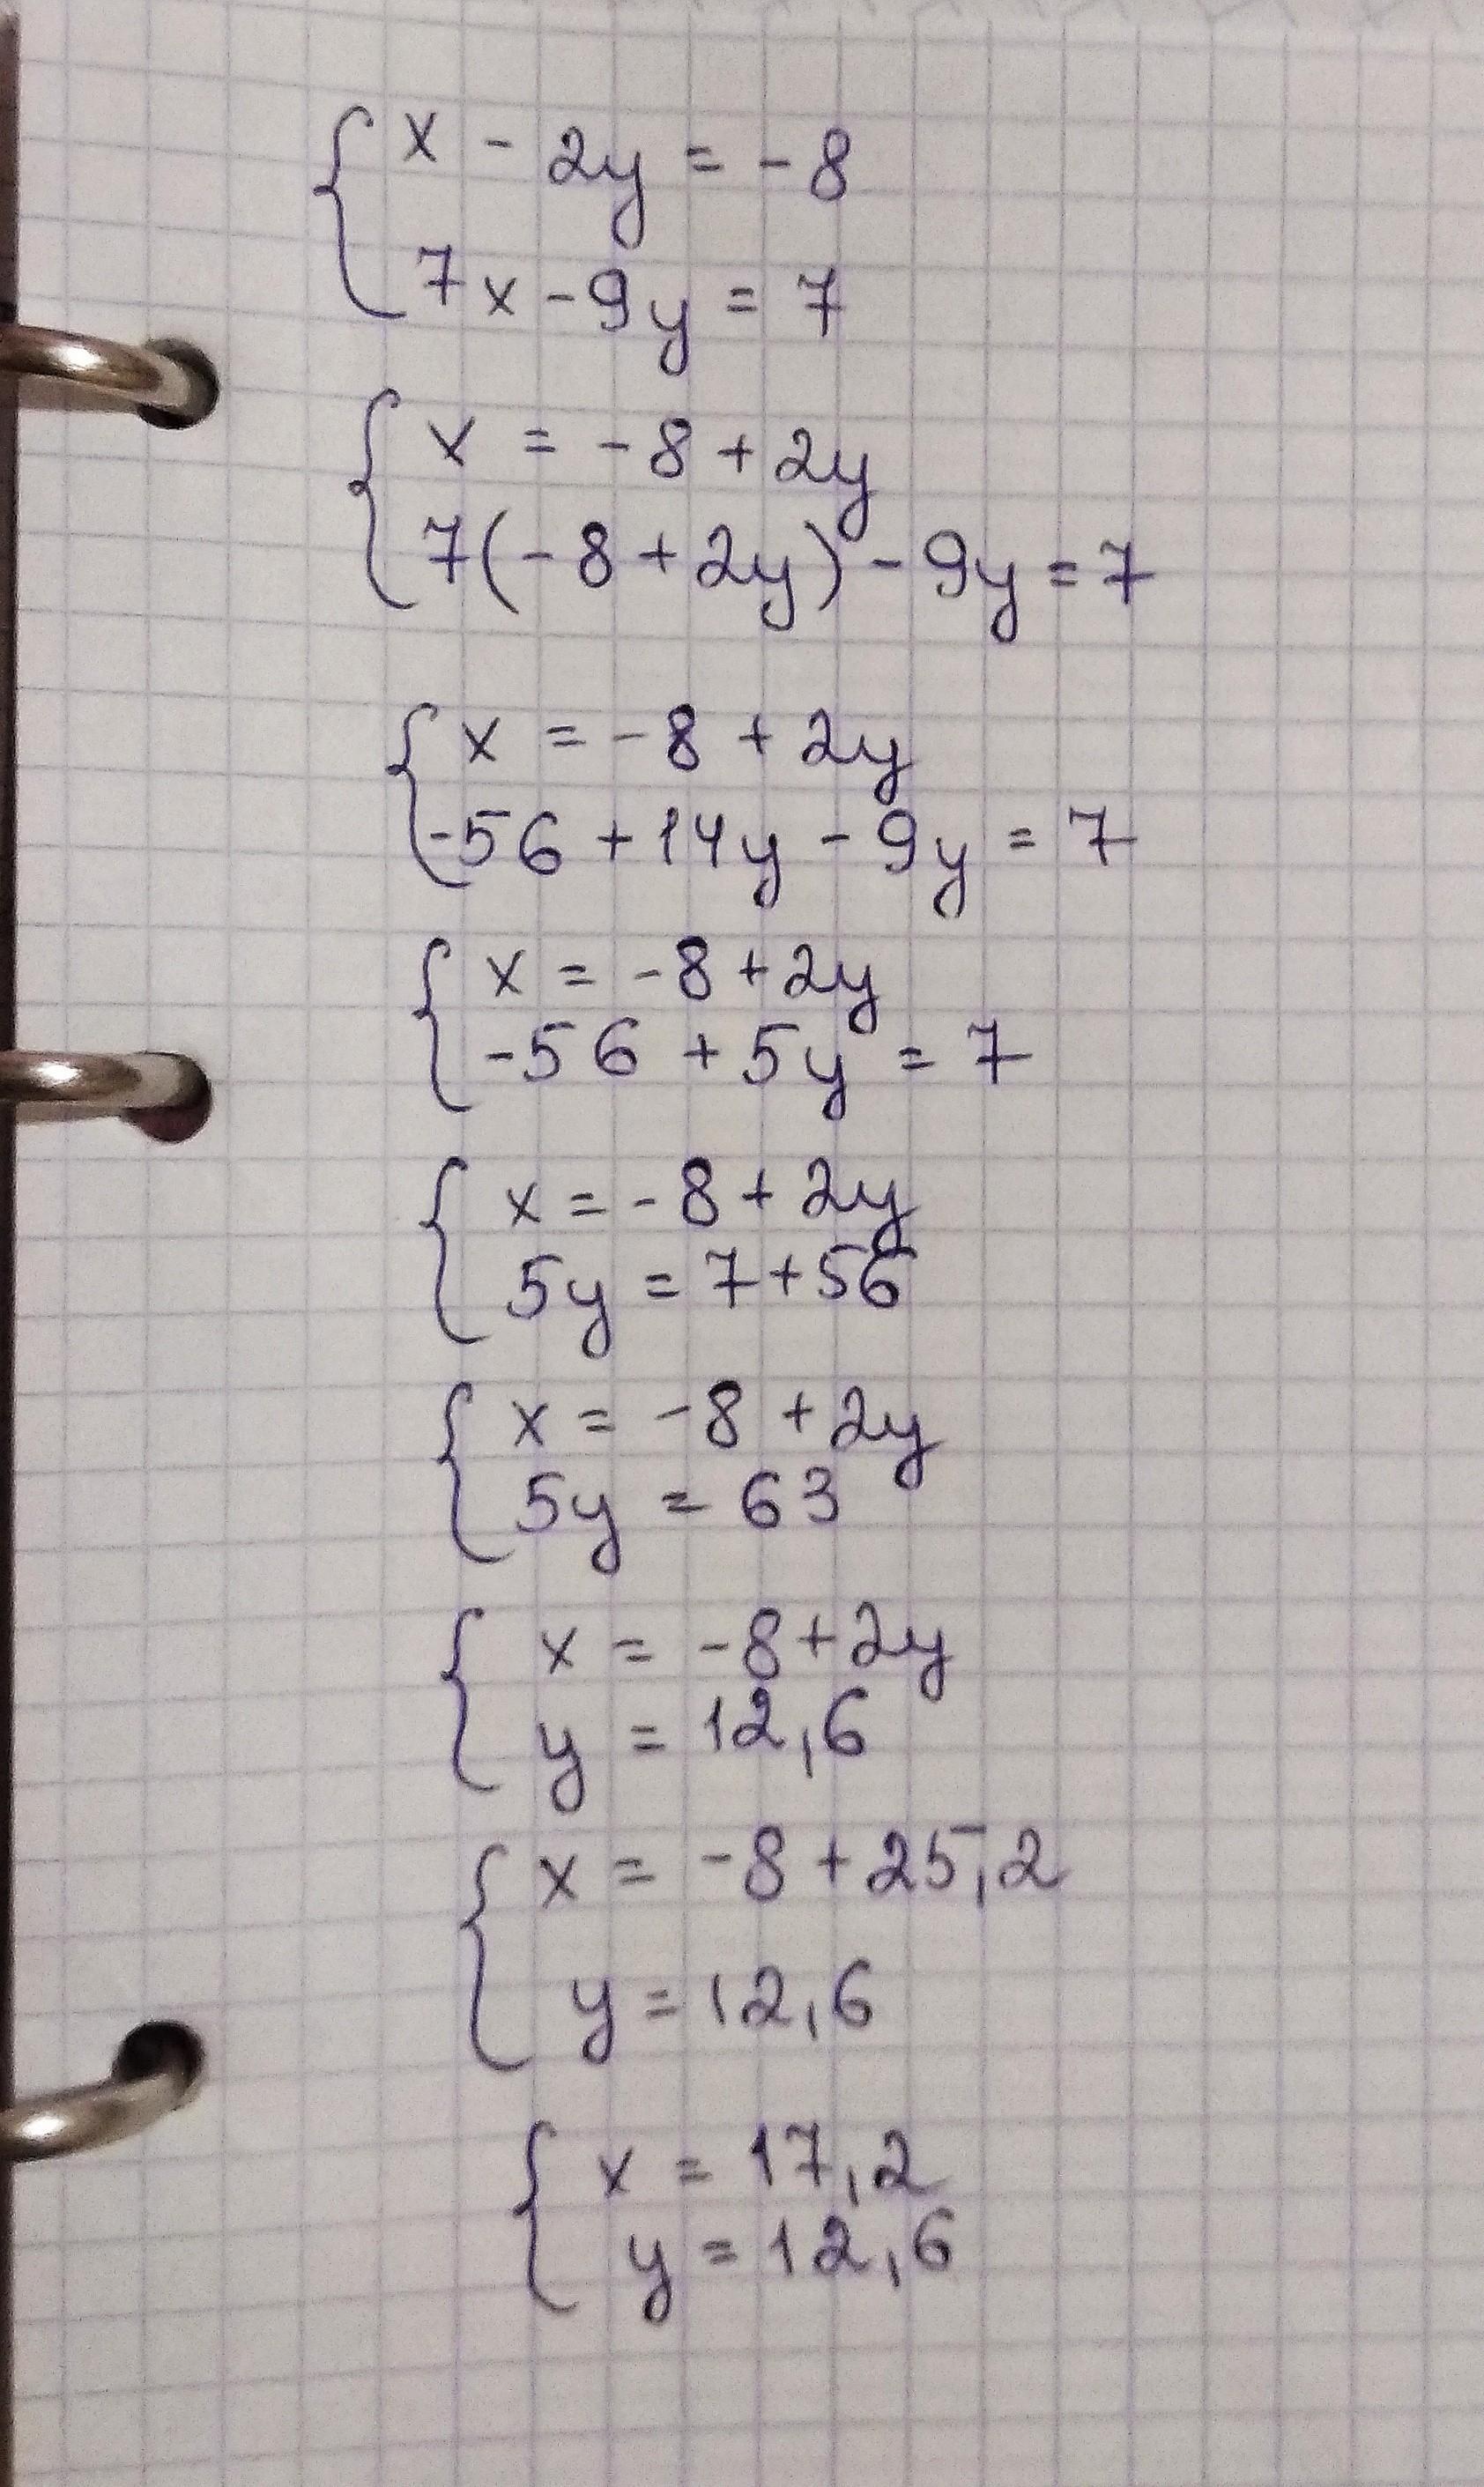 x - 2y = -8
7x - 9y = 7
x = -8 + 2y
7(-8 + 2y) - 9y = 7
x = -8 + 2y
-56 + 14y - 9y = 7
x = -8 + 2y
-56 + 5y = 7
x = -8 + 2y
5y = 7 + 56
x = -8 + 2y
5y = 63
x = -8 + 2y
y = 12,6
x = -8 + 25,2
y = 12,6
x = 17,2
y = 12,6